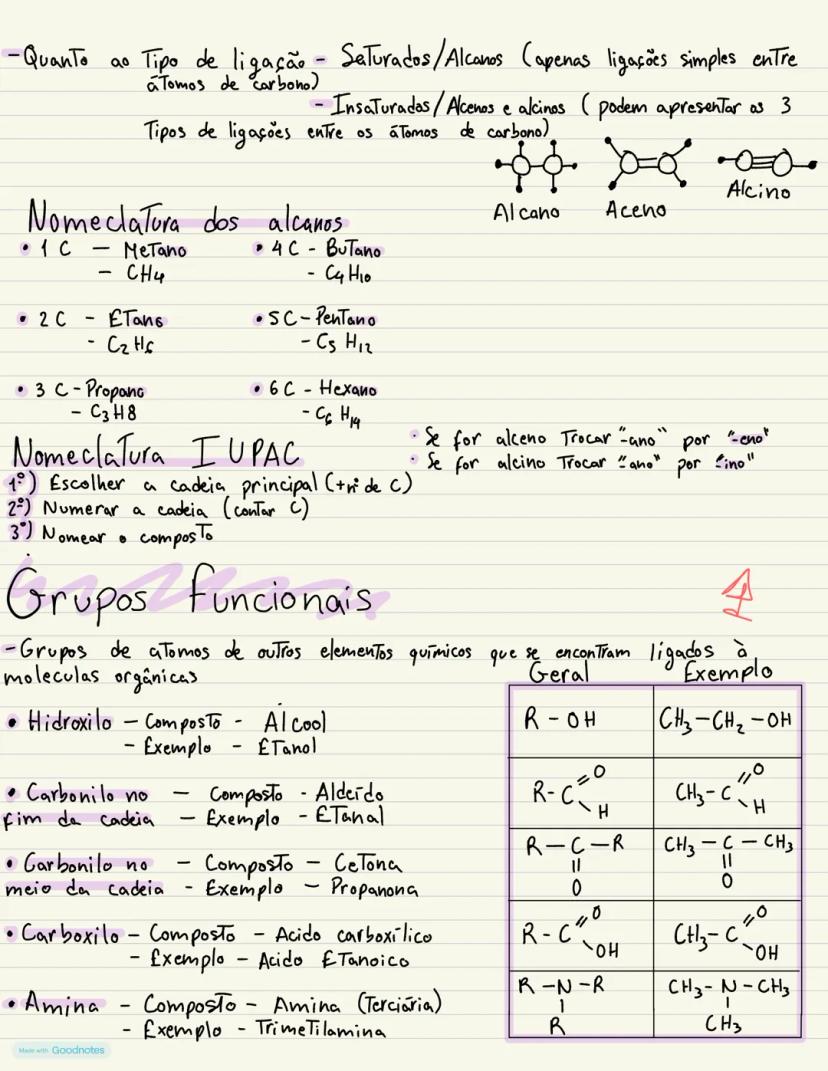 - Quanto ao Tipo de ligação - Saturados/Alcanos (apenas ligações simples entre
átomos de carbono)
- Insaturados/Alcenos e alcinos ( podem apresentar os 3
Tipos de ligações entre os átomos de carbono)
Alcano Aceno Alcino
Nomeclatura dos alcanos
• 1 C — Metano • 4 C - Butano
— CH4 - C4 H10
• 2 C - Etano • 5 C - Pentano
- C2 H6 - C5 H12
• 3 C - Propano • 6 C - Hexano
- C3 H8 - C6 H14
Nomeclatura IUPAC
• Se for alceno Trocar "-ano" por "-eno"
• Se for alcino Trocar "-ano" por "-ino"
1º) Escolher a cadeia principal (+ nº de C)
2º) Numerar a cadeia (contar C)
3º) Nomear o composto
Grupos funcionais
- Grupos de atomos de outros elementos químicos que se encontram ligados à
moleculas orgânicas
Geral Exemplo
• Hidroxilo — Composto - Álcool
- Exemplo - Etanol
R - OH CH3 - CH2 - OH
• Carbonilo no — Composto - Aldeído
fim da cadeia — Exemplo - Etanal
R - C = O H CH3 - C = O H
• Carbonilo no — Composto — Cetona
meio da cadeia - Exemplo — Propanona
R — C — R CH3 — C — CH3
O O
• Carboxilo - Composto - Acido carboxílico
- Exemplo - Acido Etanoico
R - C = O OH CH3 - C = O OH
• Amina - Composto - Amina (Terciária)
- Exemplo - Trimetilamina
R - N - R CH3 - N - CH3
R CH3
Made with Goodnotes